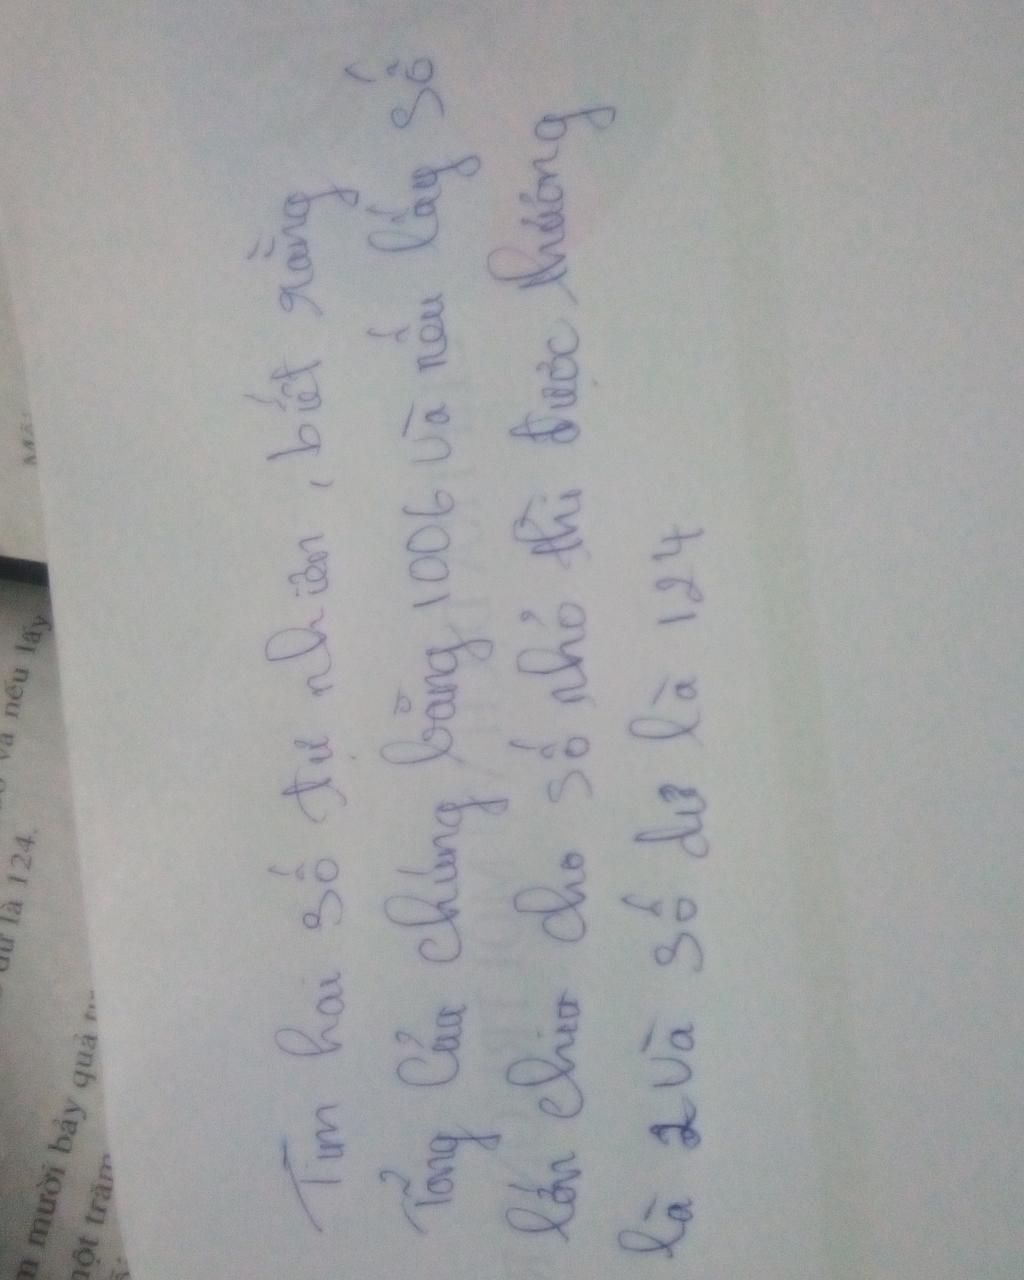 Tìm hai số tự nhiên, biết rằng
Tổng của chúng bằng 1006 và nếu lấy số
lớn chia cho số nhỏ thì được thương
là 2 và số dư là 124
và nếu lấy
dư là 124.
mười bảy quả
một trăm